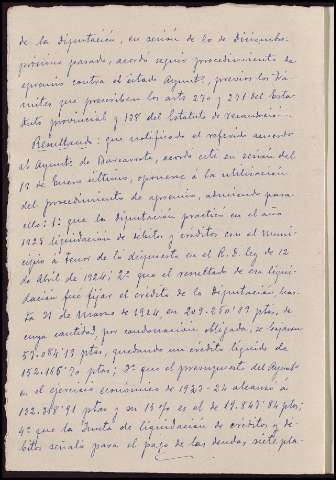 de la Diputación, en sesión de 20 de Diciembre
próximo pasado, acordó seguir procedimiento de
apremio contra el citado Ayuntº, previos los trá-
mites que prescriben los arts 270 y 271 del Esta-
tuto provincial y 138 del Estatuto de recaudación.
Resultando: que notificado el referido acuerdo
al Ayuntº de Barcarrota, acordó este en sesión del
19 de Enero último, oponerse a la utilización
del procedimiento de apremio, aduciendo para
ello: 1º que la Diputación practicó en el año
1925 liquidación de débitos y créditos con el Muni-
cipio a tenor de lo dispuesto en el R. D. ley de 12
de Abril de 1924; 2º que el resultado de esa liqui-
dación fué fijar el crédito de la Diputación, has-
ta 31 de Marzo de 1924, en ptas, de
cuya cantidad, por condonación obligada, se bajaron
ptas, quedando un crédito líquido de
ptas; 3º que el presupuesto del Ayuntº
en el ejercicio económico de 1923-24 alcanzó a
132.318'91 ptas y su 15% es el de 19.847'84 ptas;
4º que la Junta de liquidación de créditos y dé-
bitos señaló para el pago de las deudas siete pla-